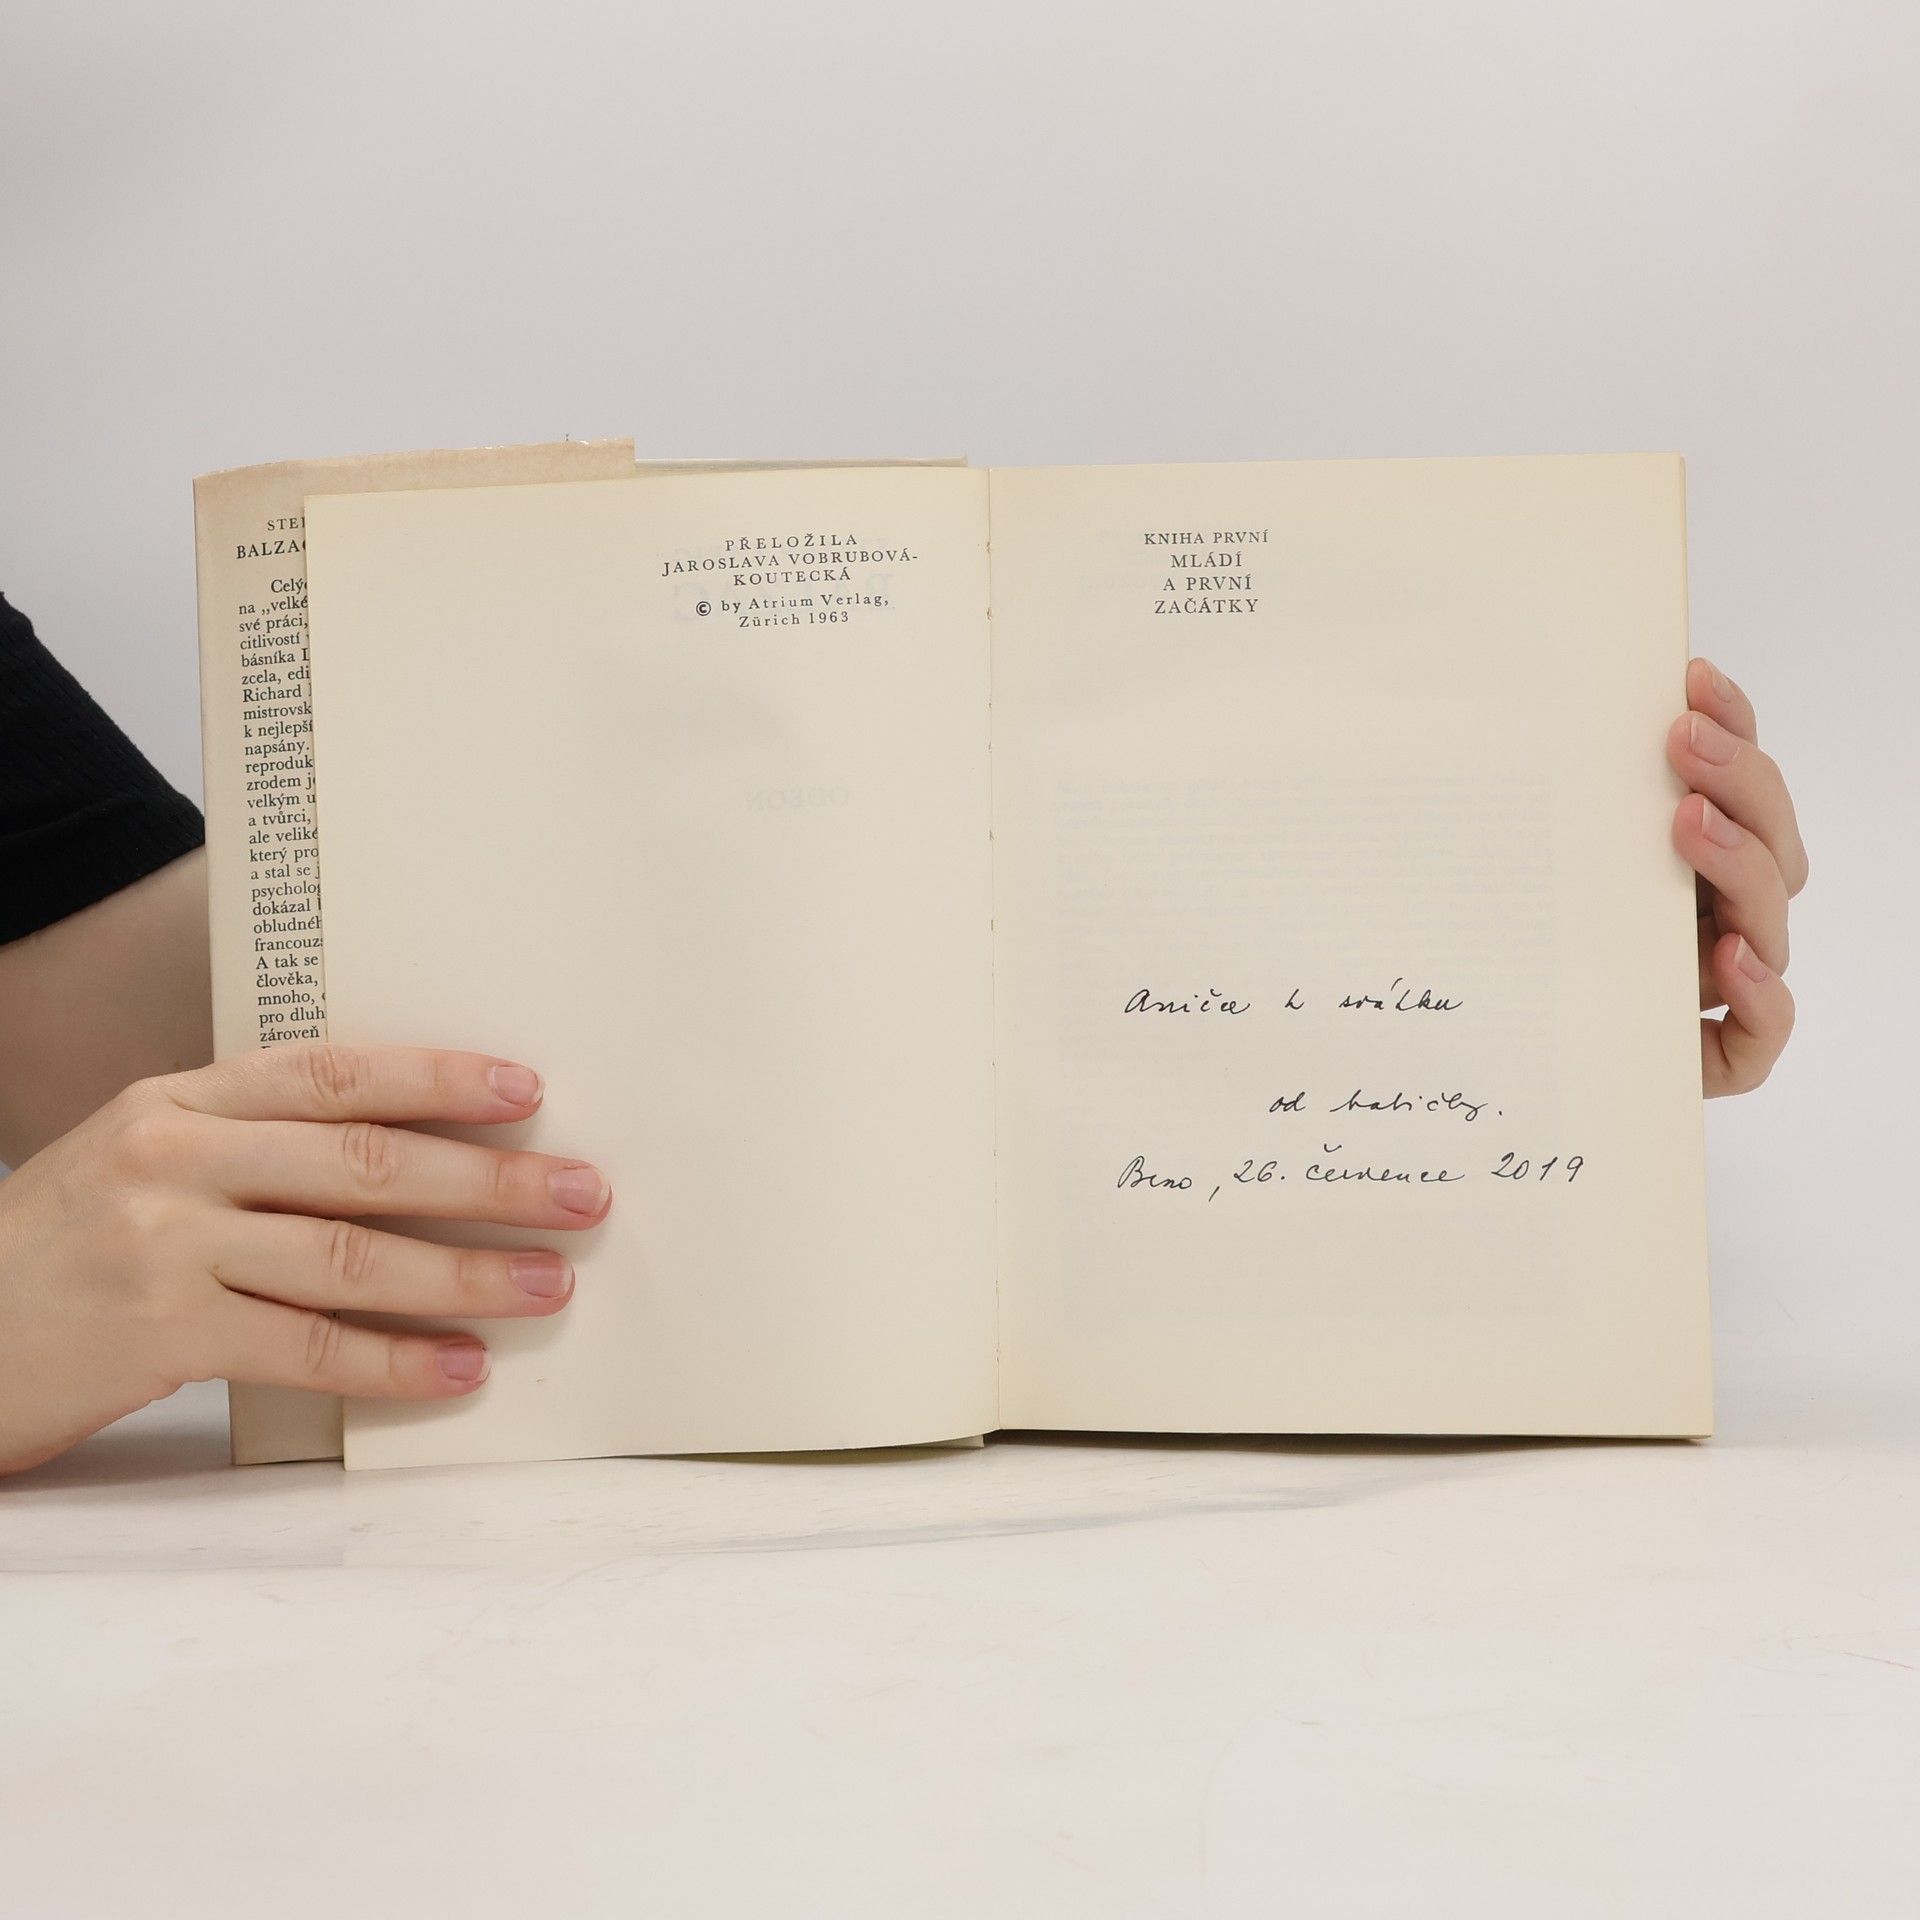 BALZAC
Celý
na „velké
své práci,
citlivostí
básníka
zcela,
Richard
mistrovsk
k nejlepší
napsány.
reproduk
zrodem
velkým
a tvůrci,
ale veliké
který pro
a stal se
psycholog
dokázal
obludnéh
francouz
A tak se
člověka,
mnoho,
pro dluh
zároveň
PŘELOŽILA
JAROSLAVA VOBRUBOVÁ-
KOUTECKÁ
© by Atrium Verlag,
Zürich 1963
KNIHA PRVNÍ
MLÁDÍ
A PRVNÍ
ZAČÁTKY
Aničce k svátku
od babičky.
Brno, 26. července 2019